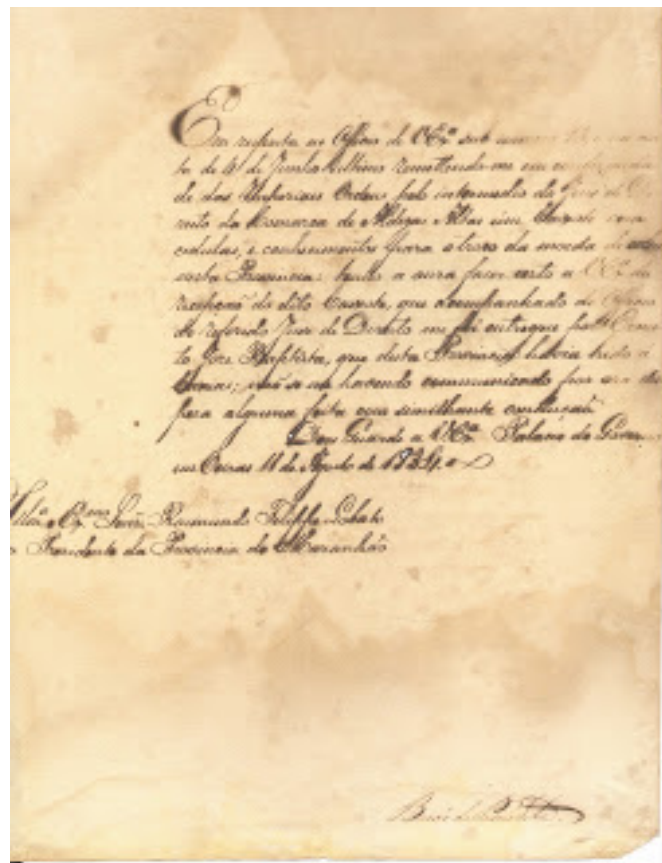 Em resposta ao Officio de V Ex.ª sob numero
to de 4 de Junho ultimo remettendo me em
de das Imperiaes Ordens pelo intermedio do Juiz de Di
reito da Comarca de Aldeas Altas um Caixote com
cedulas, e conhecimentos para o troco da moeda de cobre
nesta Provincia: tenho a faser certo a V Ex.ª da
recepção do dito Caixote, que acompanhado de Officio
do referido Juiz de Direito me foi entregue
José Baptista, que desta Provincia havia hido a
Caxias; não se me havendo communicado por
peza alguma feita com similhante conducção
Deos Guarde a V Ex.ª Palacio do Governo
em Oeiras 11 de Agosto de 1834.
Ill.mo e Ex.mo Senr. Raimundo Filippe Lobato
Presidente da Provincia do Maranhão
Barão da Parnahiba